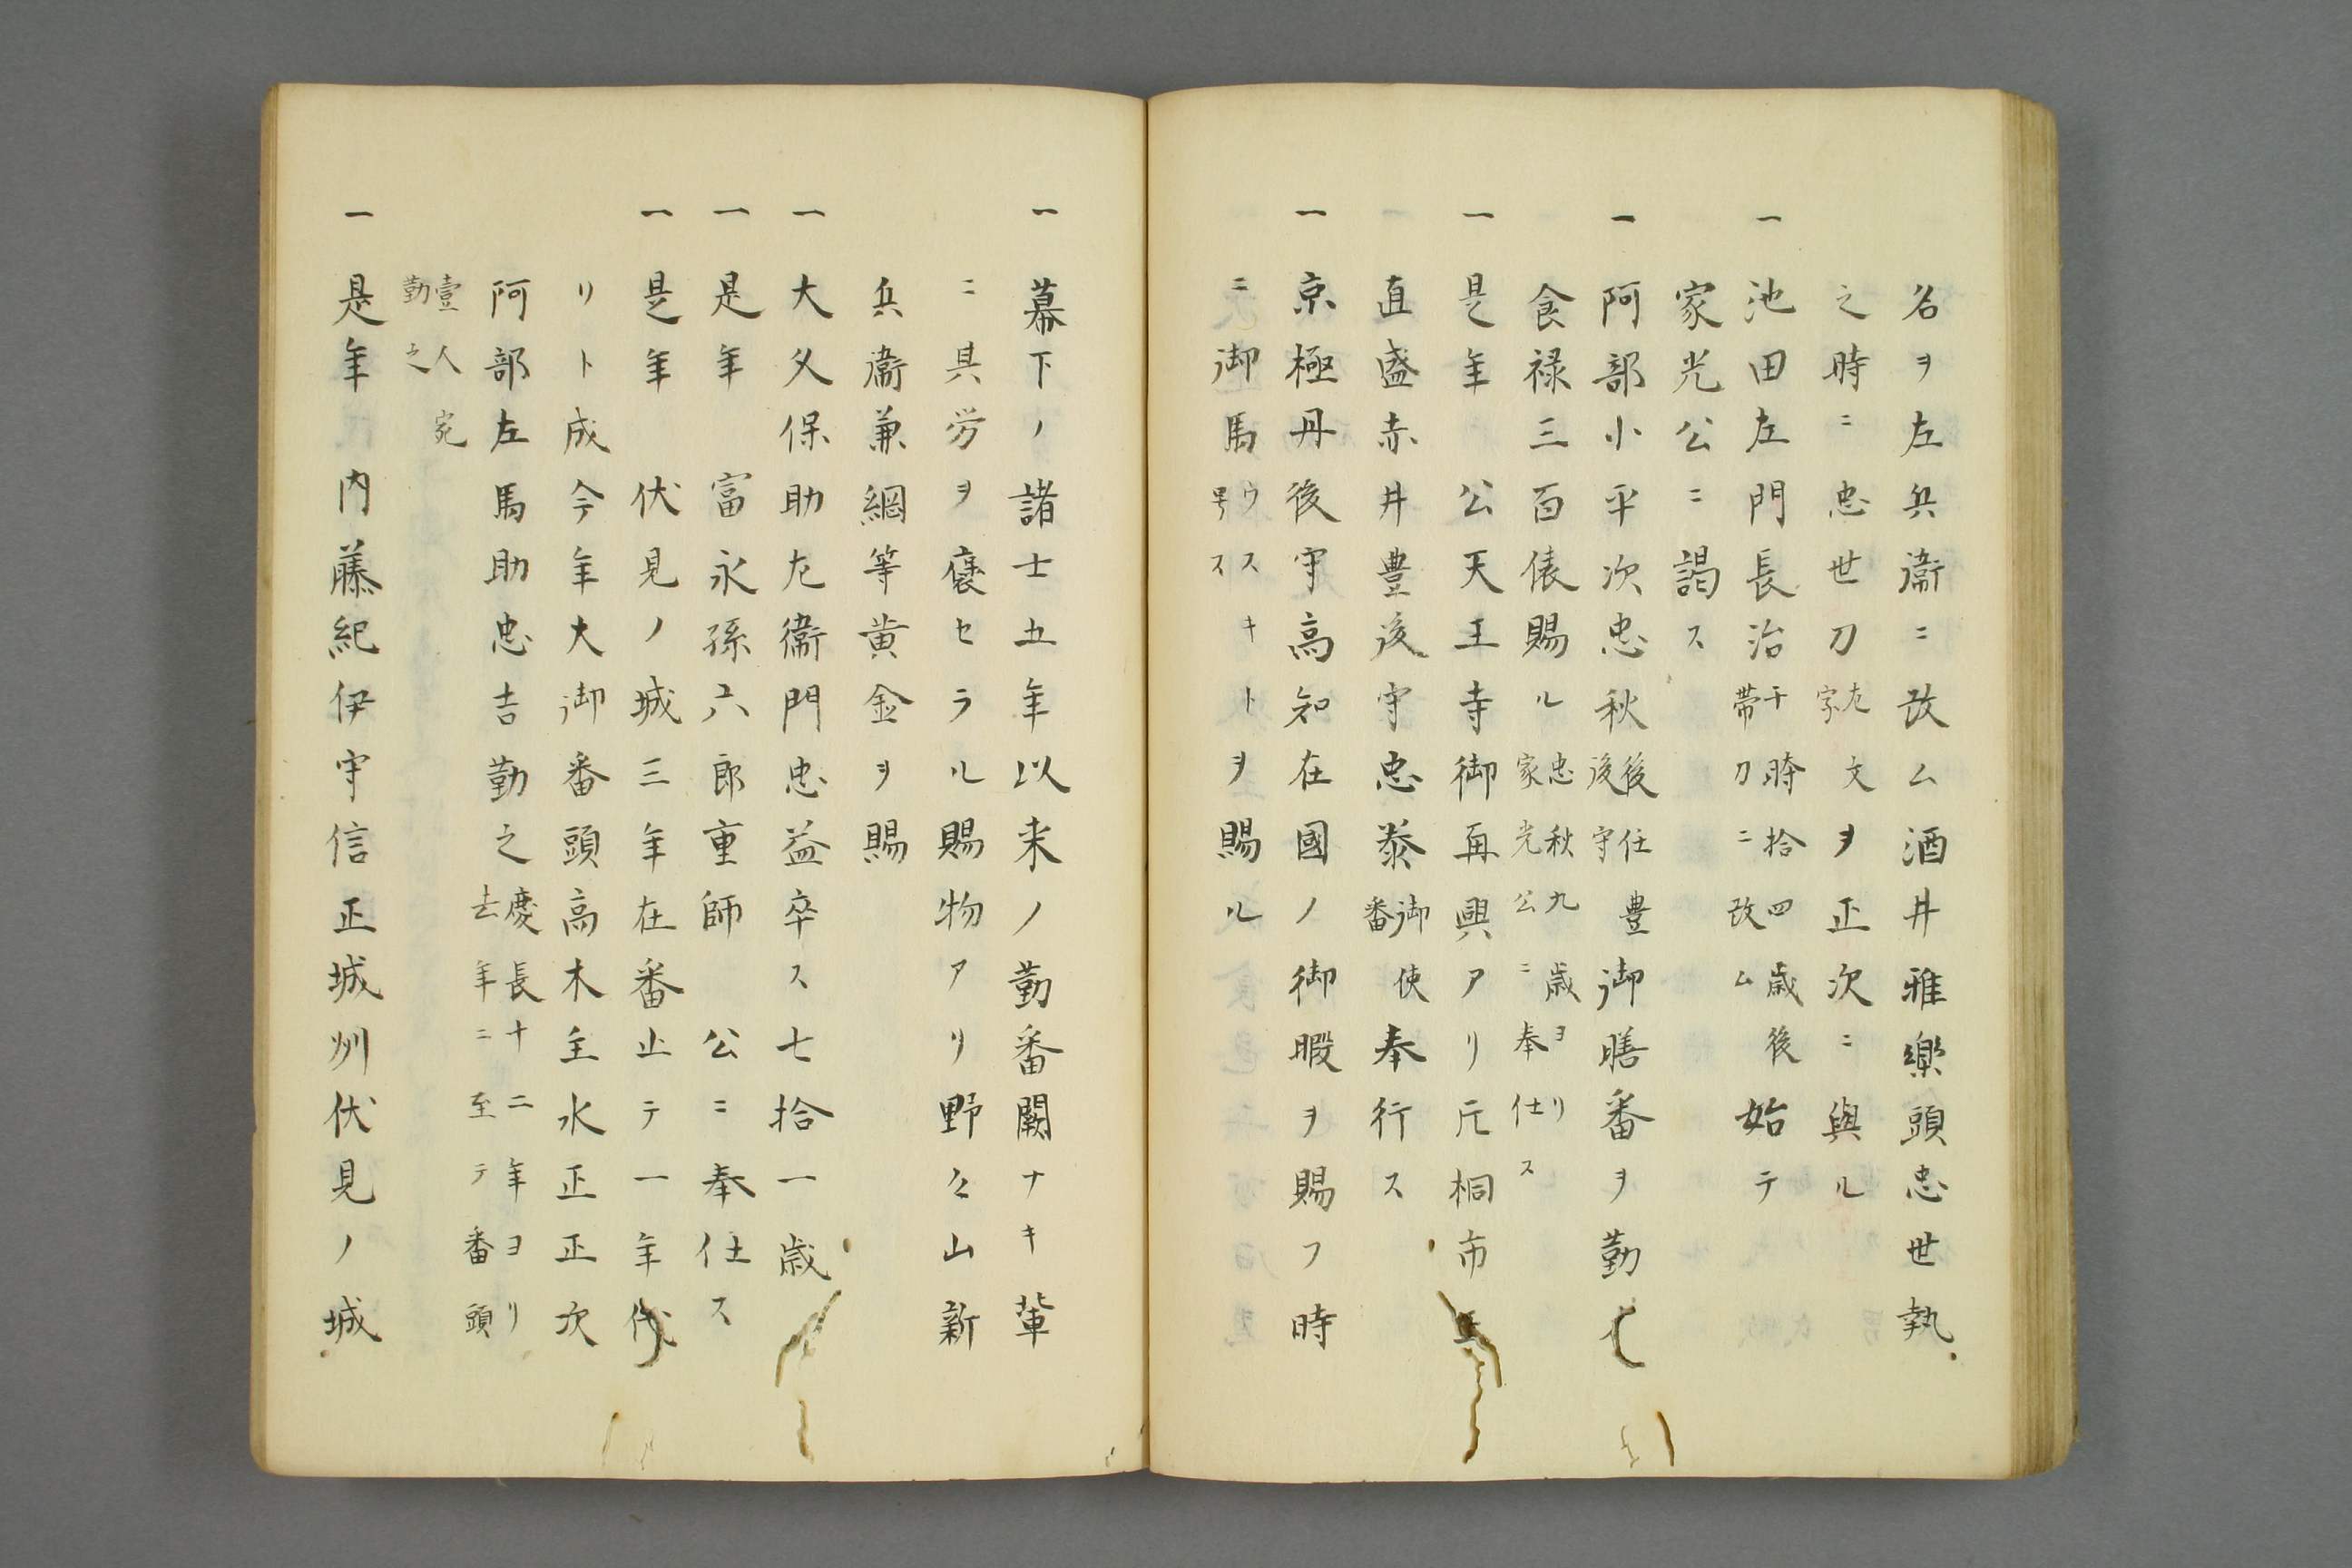 名ヲ左兵衞ニ改ム酒井雅樂頭忠世執
之時ニ忠世刀左字文ヲ正次ニ與ル
一 池田左門長治于時拾四歳後帯刀ニ改ム始テ
家光公ニ謁ス
一 阿部小平次忠秋後任豊後守御膳番ヲ勤
食禄三百俵賜ル忠秋九歳ヨリ家光公ニ奉仕ス
一 是年 公天王寺御再興アリ片桐市正
直盛赤井豊後守忠泰御使番奉行ス
一 京極丹後守高知在國ノ御暇ヲ賜フ時
ニ御馬ウスキト号スヲ賜ル
一 幕下ノ諸士五年以来ノ勤番闕ナキ輩
ニ其労ヲ褒セラル賜物アリ野々山新
兵衞兼綱等黄金ヲ賜
一 大久保助左衞門忠益卒ス七拾一歳
一 是年 富永孫六郎重師 公ニ奉仕ス
一 是年 伏見ノ城三年在番止テ一年代
リト成今年大御番頭高木主水正正次
阿部左馬助忠吉勤之慶長十二年ヨリ去年ニ至テ番頭
壹人宛勤之
一 是年 内藤紀伊守信正城州伏見ノ城